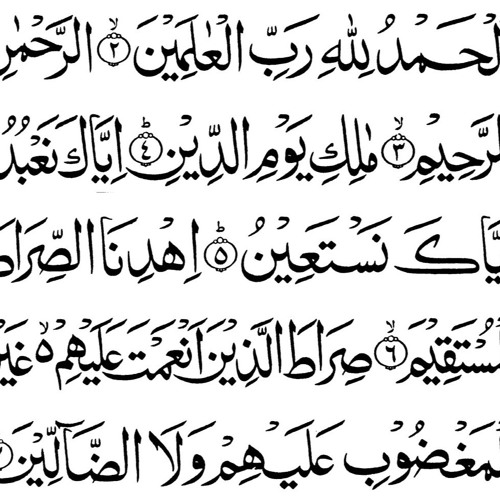 لحمد لله رب العلمين ۲ الرحمن
لرحيم ۳ ملك يوم الدين ۴ اياك نعبد
ياك نستعين ۵ اهدنا الصراط
لمستقيم ۶ صراط الذين انعمت عليهم ۵ غير
لمغضوب عليهم ولا الضالين